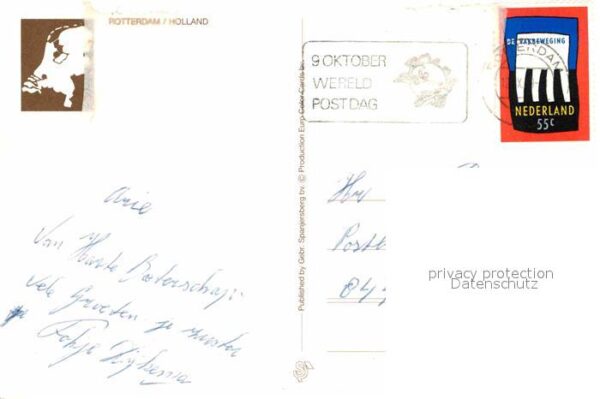 ROTTERDAM / HOLLAND
9 OKTOBER
WERELD
POSTDAG
NEDERLAND
55c
Published by Gebr. Spanjersberg bv. © Production Euro-Color-Cards bv.
Arie
Van Harte Beterschap
vele Groeten je zuster
Hr
Post
privacy protection
Datenschutz